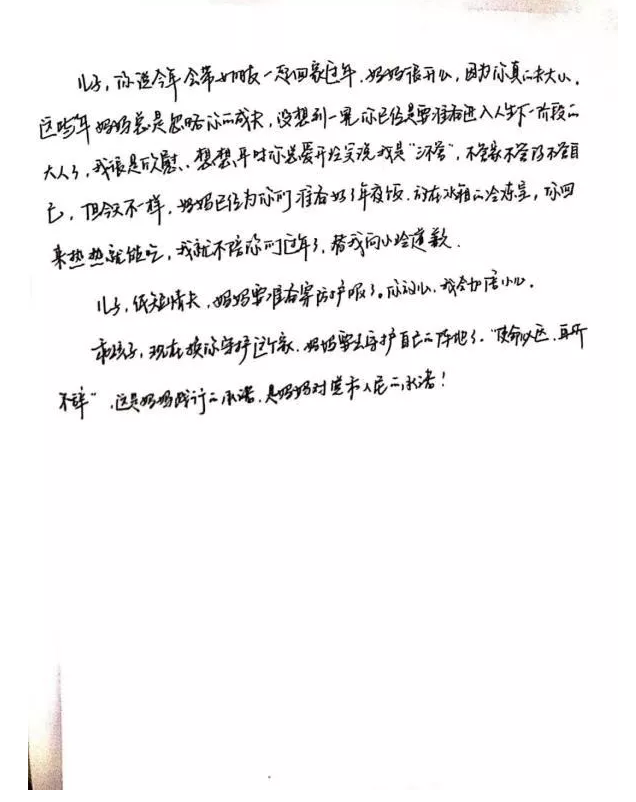 儿子，你说今年会带女朋友一起回家过年，妈妈很开心，因为你真的长大了。
这些年妈妈总是忽略你的成长，没想到一晃你已经是要准备进入人生下一阶段的
大人了，我很是欣慰、想想平时你总爱开玩笑说我是“三不管”，不管家不管你不管自
己，但今天不一样，妈妈已经为你们准备好了年夜饭，放在冰箱的冷冻室，你回
来热热就能吃，我就不陪你们过年了，替我向小玲道歉．
儿子，纸短情长，妈妈要准备穿防护服了。你放心，我会加倍小心．
孩子，现在换你守护这个家，妈妈要去守护自己的阵地了．“使命必达，再所
不辞”，这是妈妈践行的承诺，是妈妈对党和人民的承诺！